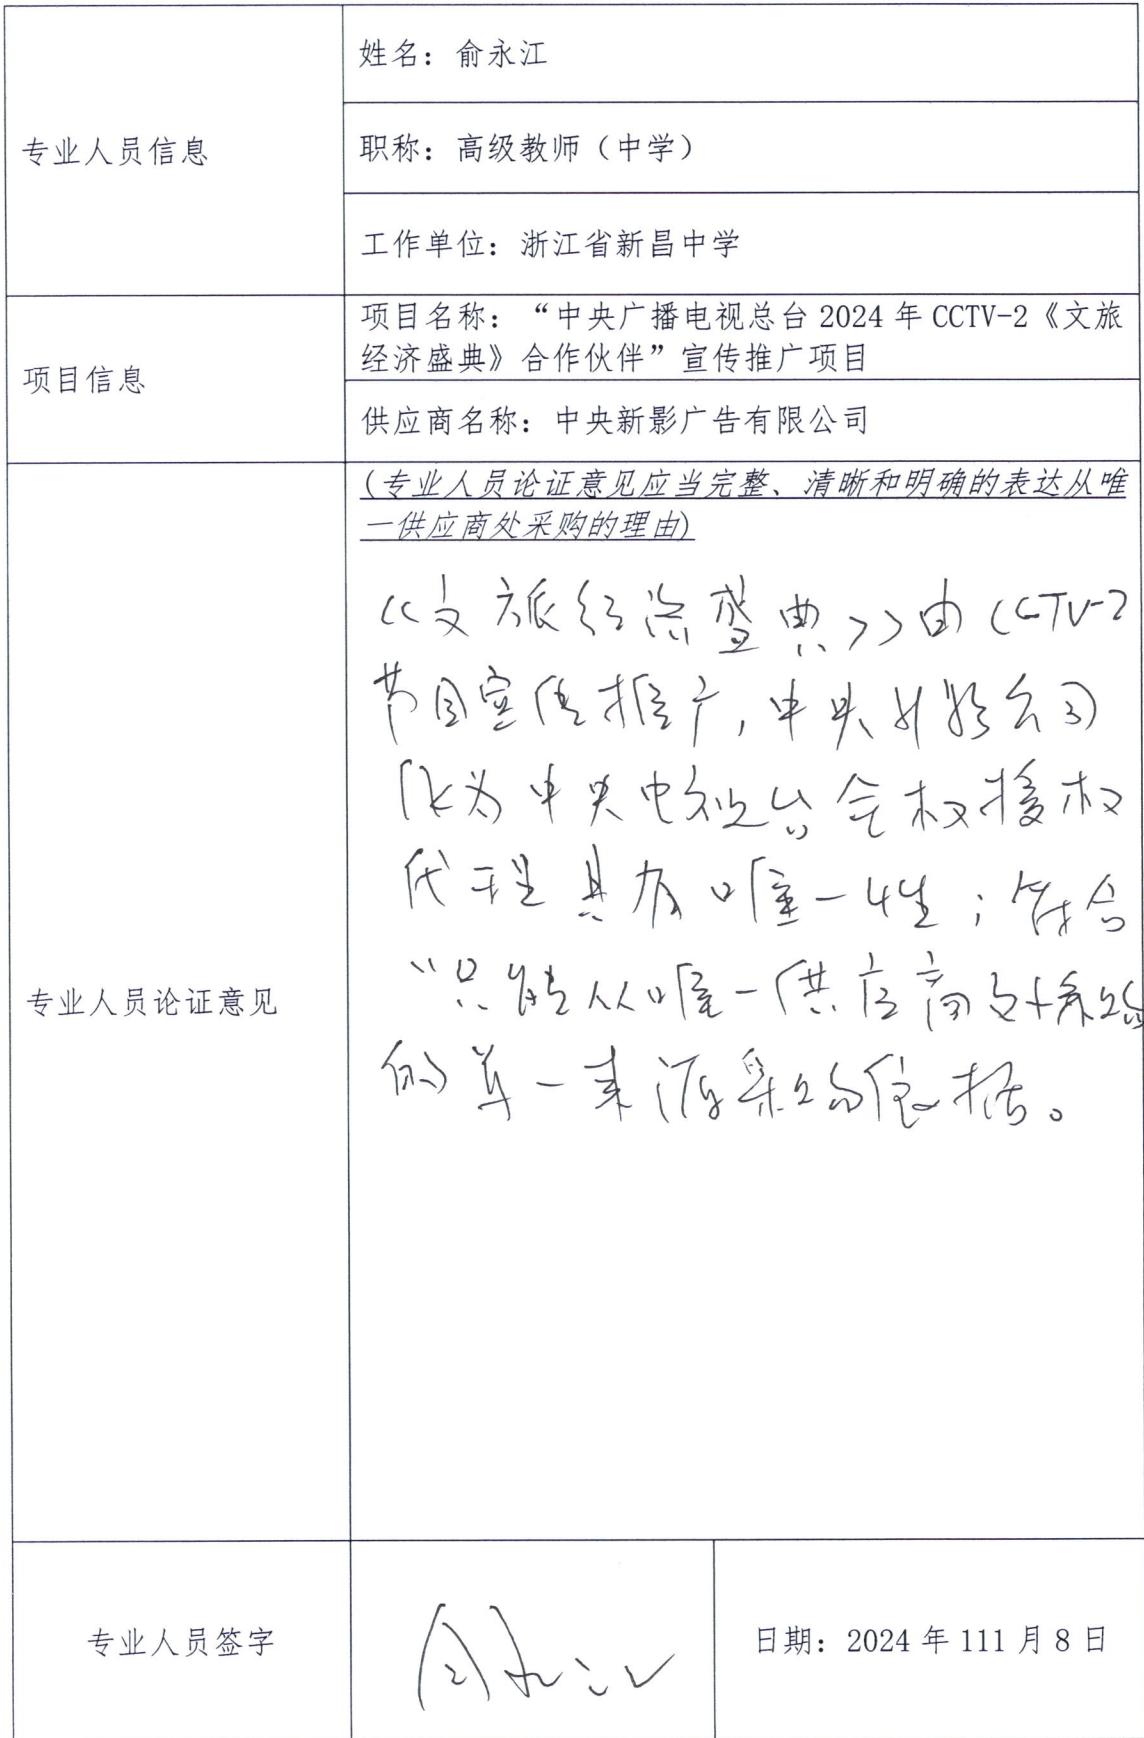 专业人员信息
姓名：俞永江
职称：高级教师（中学）
工作单位：浙江省新昌中学
项目信息
项目名称：“中央广播电视总台 2024 年 CCTV-2《文旅
经济盛典》合作伙伴”宣传推广项目
供应商名称：中央新影广告有限公司
专业人员论证意见
(专业人员论证意见应当完整、清晰和明确的表达从唯
一供应商处采购的理由)
《文旅经济盛典》由CCTV-2
节目宣传推广，中央新影公司
作为中央电视台全权授权
代理具有唯一性；符合
“只能从唯一供应商处采购
的单一来源采购依据。
专业人员签字
俞永江
日期：2024 年 111 月 8 日